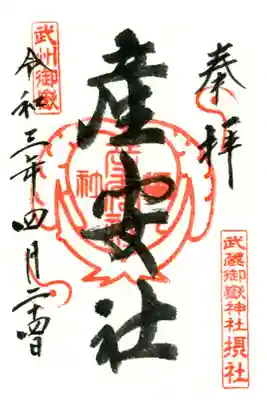 奉拝
産安社
武州御嶽
令和三年四月二十四日
武蔵御嶽神社摂社